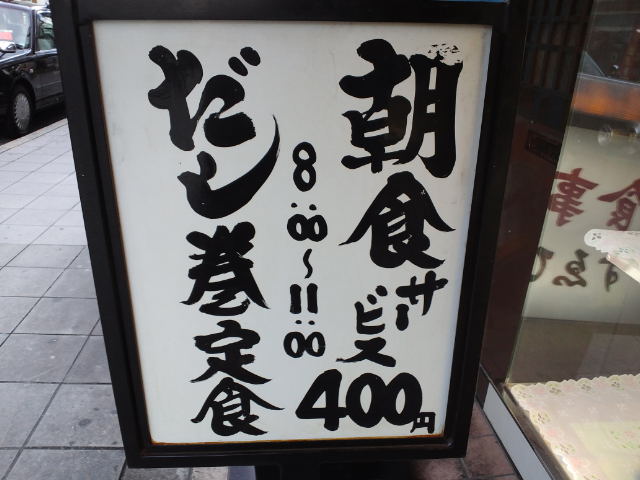 朝食サービス400円
8:00〜11:00
だし巻定食
食事